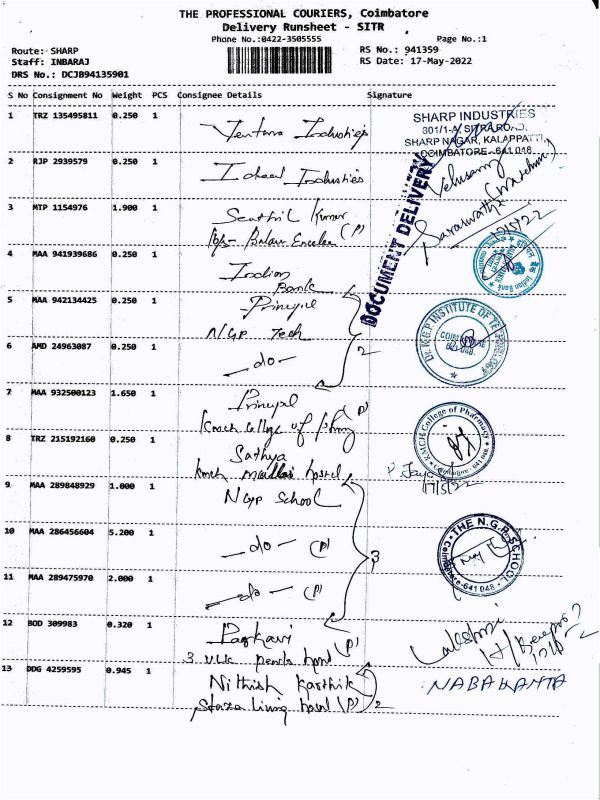 THE PROFESSIONAL COURIERS, Coimbatore
Delivery Runsheet - SITR
Phone No.:0422-3505555 Page No.:1
Route: SHARP RS No.: 941359
Staff: INBARAJ RS Date: 17-May-2022
DRS No.: DCJB94135901
S No Consignment No Weight PCS Consignee Details Signature
1 TRZ 135495811 0.250 1 Ventura Industries
SHARP INDUSTRIES
301/1-A, SITRA ROAD,
SHARP NAGAR, KALAPPATTI,
COIMBATORE - 641 048.
2 RJP 2939579 0.250 1 Ideal Industries
Velusamy
DOCUMENT DELIVERY
3 MTP 1154976 1.900 1 Senthil Kumar
(P)
Saraswathi
17/5/22
4 MAA 941939686 0.250 1 Indian
Bank
Indian Bank
5 MAA 942134425 0.250 1 Principal
NGP Tech
Dr. N.G.P. INSTITUTE OF TECHNOLOGY
COIMBATORE
641 048.
6 AMD 24963087 0.250 1 - do -
2
7 MAA 932500123 1.650 1 Principal (P)
Kmch College of
KMCH College of Pharmacy
8 TRZ 215192160 0.250 1 Sathya
Kmch hostel
17/5/22
9 MAA 289848929 1.000 1 NGP School
10 MAA 286456604 5.200 1 - do - (P)
3
THE N.G.P. SCHOOL
Coimbatore-641 048
11 MAA 289475970 2.000 1 - do - (P)
12 BOD 309983 0.320 1 (P)
13 DDG 4259595 0.945 1 Nithish Karthik
NABAKANTA
Living hostel (P) 2